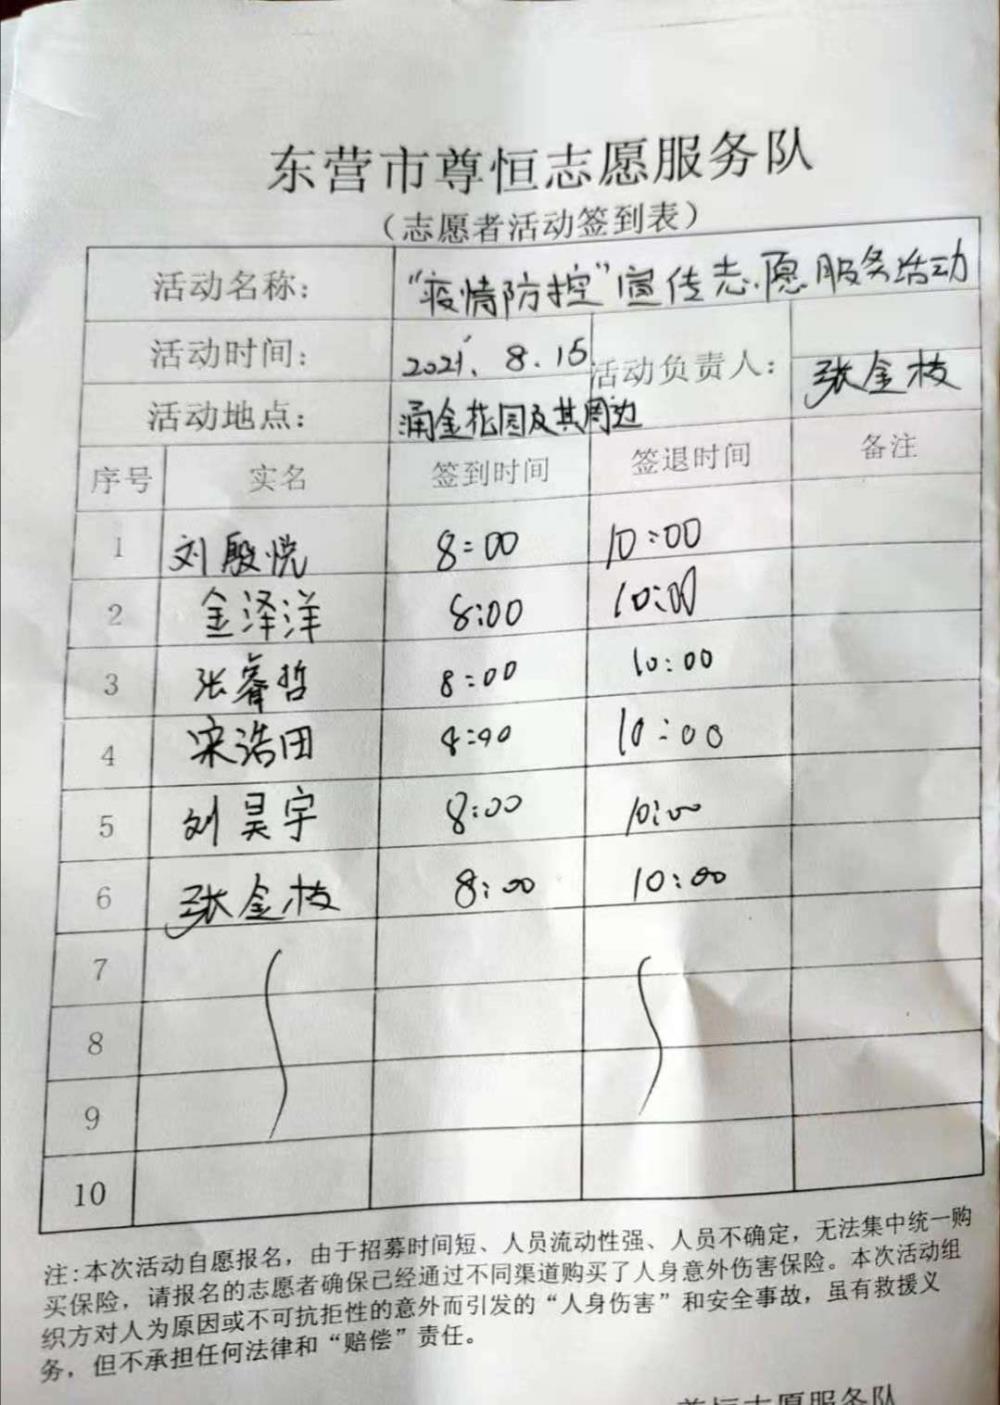 东营市尊恒志愿服务队
（志愿者活动签到表）
活动名称： “疫情防控”宣传志愿服务活动
活动时间： 2021.8.15 活动负责人： 张金枝
活动地点： 涌金花园及其周边
序号 实名 签到时间 签退时间 备注
1 刘殷悦 8:00 10:00
2 金泽洋 8:00 10:00
3 张睿哲 8:00 10:00
4 宋浩田 8:00 10:00
5 刘昊宇 8:00 10:00
6 张金枝 8:00 10:00
7
8
9
10
注:本次活动自愿报名，由于招募时间短、人员流动性强、人员不确定，无法集中统一购
买保险，请报名的志愿者确保已经通过不同渠道购买了人身意外伤害保险。本次活动组
织方对人为原因或不可抗拒性的意外而引发的“人身伤害”和安全事故，虽有救援义
务，但不承担任何法律和“赔偿”责任。
尊恒志愿服务队